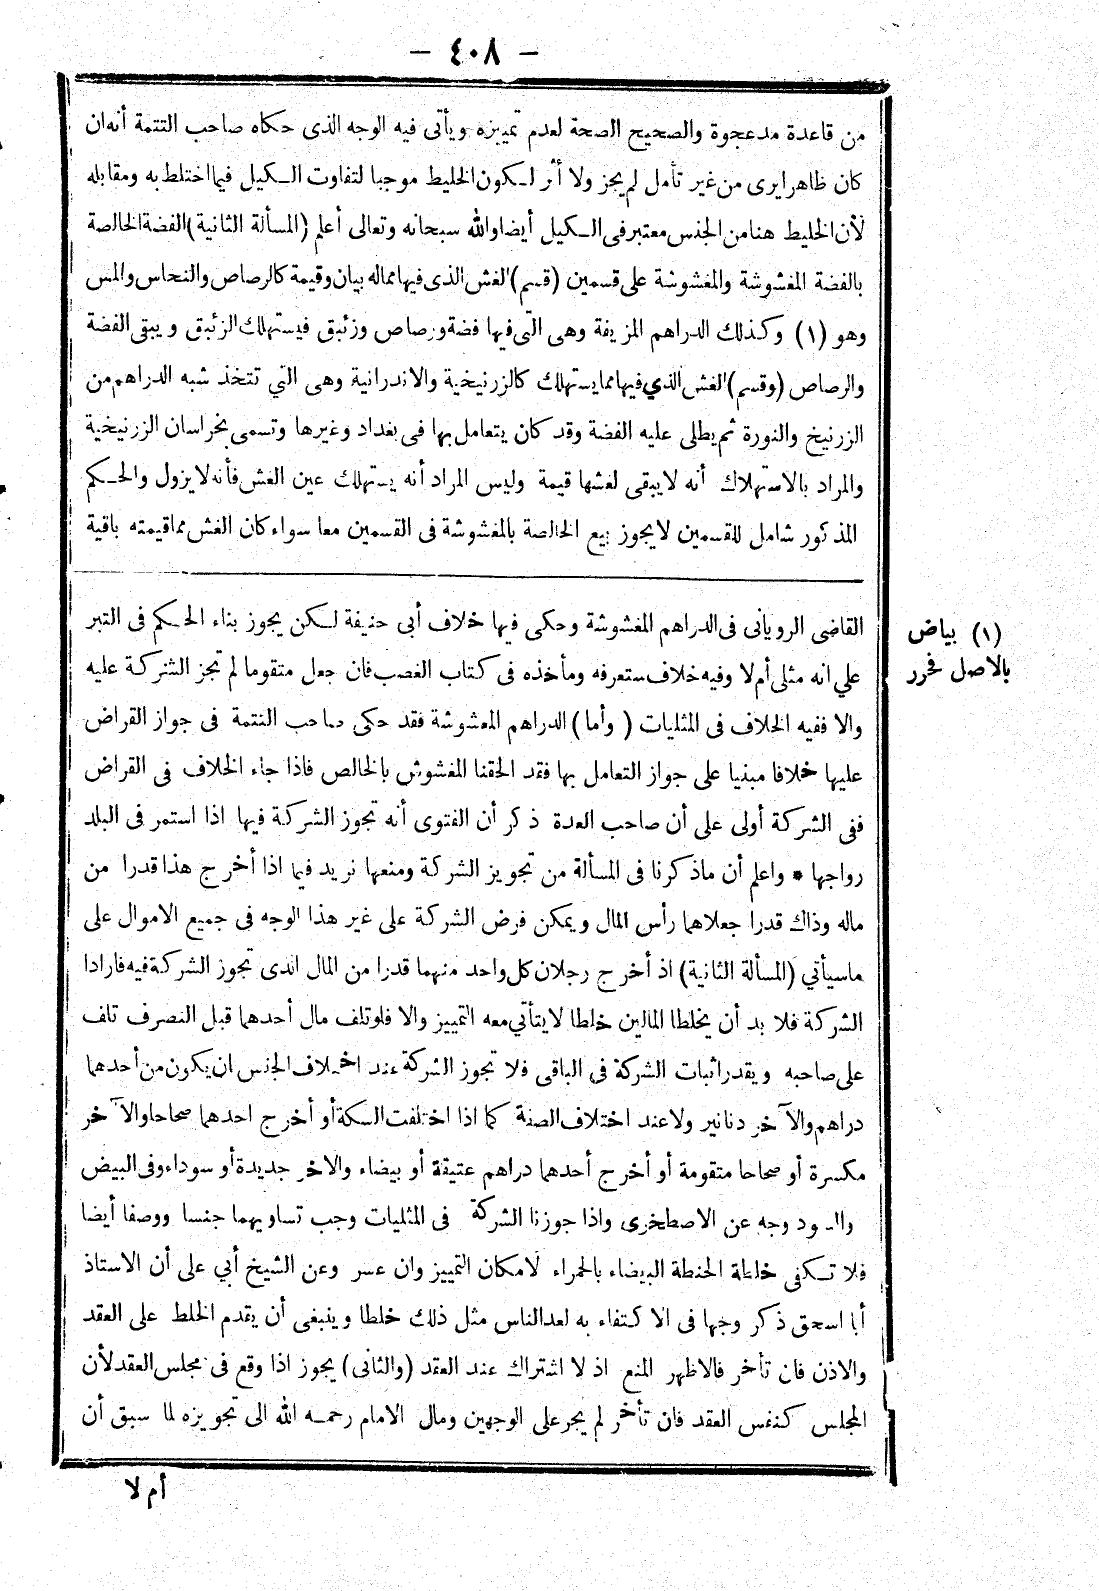 — ٤٠٨ —
من قاعدة مدعجوة والصحيح الصحة لعدم تمييزه ويأتى فيه الوجه الذى حكاه صاحب التتمة أنه ان
كان ظاهرا يرى من غير تأمل لم يجز ولا أثر لكون الخليط موجبا لتفاوت الكيل فيما اختلط به ومقابله
لأن الخليط هنا من الجنس معتبر فى الكيل أيضا والله سبحانه وتعالى أعلم (المسألة الثانية) الفضة الخالصة
بالفضة المغشوشة والمغشوشة على قسمين (قسم) الغش الذى فيها مماله بيان وقيمة كالرصاص والنحاس والمس
وهو (١) وكذلك الدراهم المزيفة وهى التى فيها فضة ورصاص وزئبق فيستهلك الزئبق ويبقى الفضة
والرصاص (وقسم) الغش الذي فيها مما يستهلك كالزرنيخية والاندرانية وهى التي تتخذ شبه الدراهم من
الزرنيخ والنورة ثم يطلى عليه الفضة وقد كان يتعامل بها فى بغداد وغيرها وتسمى بخراسان الزرنيخية
والمراد بالاستهلاك أنه لا يبقى لغشها قيمة وليس المراد أنه يستهلك عين الغش فأنه لا يزول والحكم
المذكور شامل للقسمين لا يجوز بيع الخالصة بالمغشوشة فى القسمين معا سواء كان الغش مما قيمته باقية
القاضى الرويانى فى الدراهم المغشوشة وحكى فيها خلاف أبى حنيفة لكن يجوز بناء الحكم فى التبر
علي انه مثلى أم لا وفيه خلاف ستعرفه ومأخذه فى كتاب الغصب فان جعل متقوما لم تجز الشركة عليه
والا ففيه الخلاف فى المثليات (وأما) الدراهم المغشوشة فقد حكى صاحب التتمة فى جواز القراض
عليها خلافا مبنيا على جواز التعامل بها فقد الحقنا المغشوش بالخالص فاذا جاء الخلاف فى القراض
ففى الشركة أولى على أن صاحب العدة ذكر أن الفتوى أنه تجوز الشركة فيها اذا استمر فى البلد
رواجها * واعلم أن ماذكرنا فى المسألة من تجويز الشركة ومنعها نريد فيما اذا أخرج هذا قدرا من
ماله وذاك قدرا جعلاهما رأس المال ويمكن فرض الشركة على غير هذا الوجه فى جميع الاموال على
ماسيأتي (المسألة الثانية) اذ أخرج رجلان كل واحد منهما قدرا من المال الذى تجوز الشركة فيه فارادا
الشركة فلا بد أن يخلطا المالين خلطا لا يتأتي معه التمييز والا فلو تلف مال أحدهما قبل التصرف تلف
على صاحبه ويقدر اثبات الشركة في الباقى فلا تجوز الشركة عند اختلاف الجنس ان يكون من أحدهما
دراهم والآخر دنانير ولا عند اختلاف الصفة كما اذا اختلفت السكة أو أخرج احدهما صحاحا والآخر
مكسرة أو صحاحا متقومة أو أخرج أحدهما دراهم عتيقة أو بيضاء والاخر جديدة أو سوداء وفى البيض
والسود وجه عن الاصطخرى واذا جوزنا الشركة فى المثليات وجب تساويهما جنسا ووصفا أيضا
فلا تكفى خلطة الحنطة البيضاء بالحمراء لامكان التمييز وان عسر وعن الشيخ أبي على أن الاستاذ
أبا اسحق ذكر وجها فى الاكتفاء به لعد الناس مثل ذلك خلطا وينبغى أن يقدم الخلط على العقد
والاذن فان تأخر فالاظهر المنع اذ لا اشتراك عند العقد (والثانى) يجوز اذا وقع فى مجلس العقد لأن
المجلس كنفس العقد فان تأخر لم يجر على الوجهين ومال الامام رحمه الله الى تجويزه لما سبق أن
أم لا
(١) بياض
بالاصل فحرر